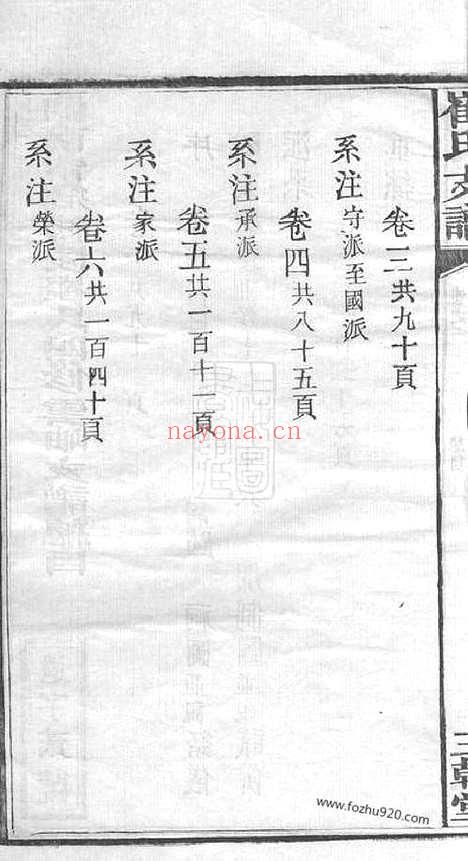 崔氏支譜
卷三共九十頁
系注守派至國派
卷四共八十五頁
系注承派
卷五共一百十一頁
系注家派
卷六共一百四十頁
系注榮派
三朝堂
nayona.cn
www.fozhu920.com